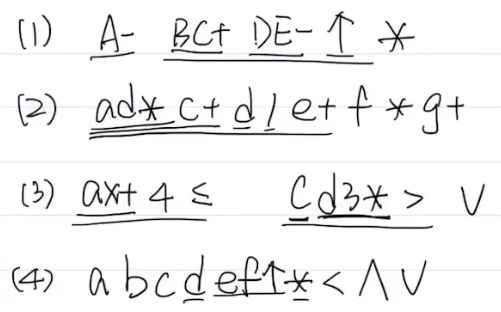 (1) A- BC+ DE- ↑ *
(2) ad* c+ d / e+ f * g+
(3) ax+ 4 ≤ cd3* > ∨
(4) a b c d e f ↑ * < ∧ ∨